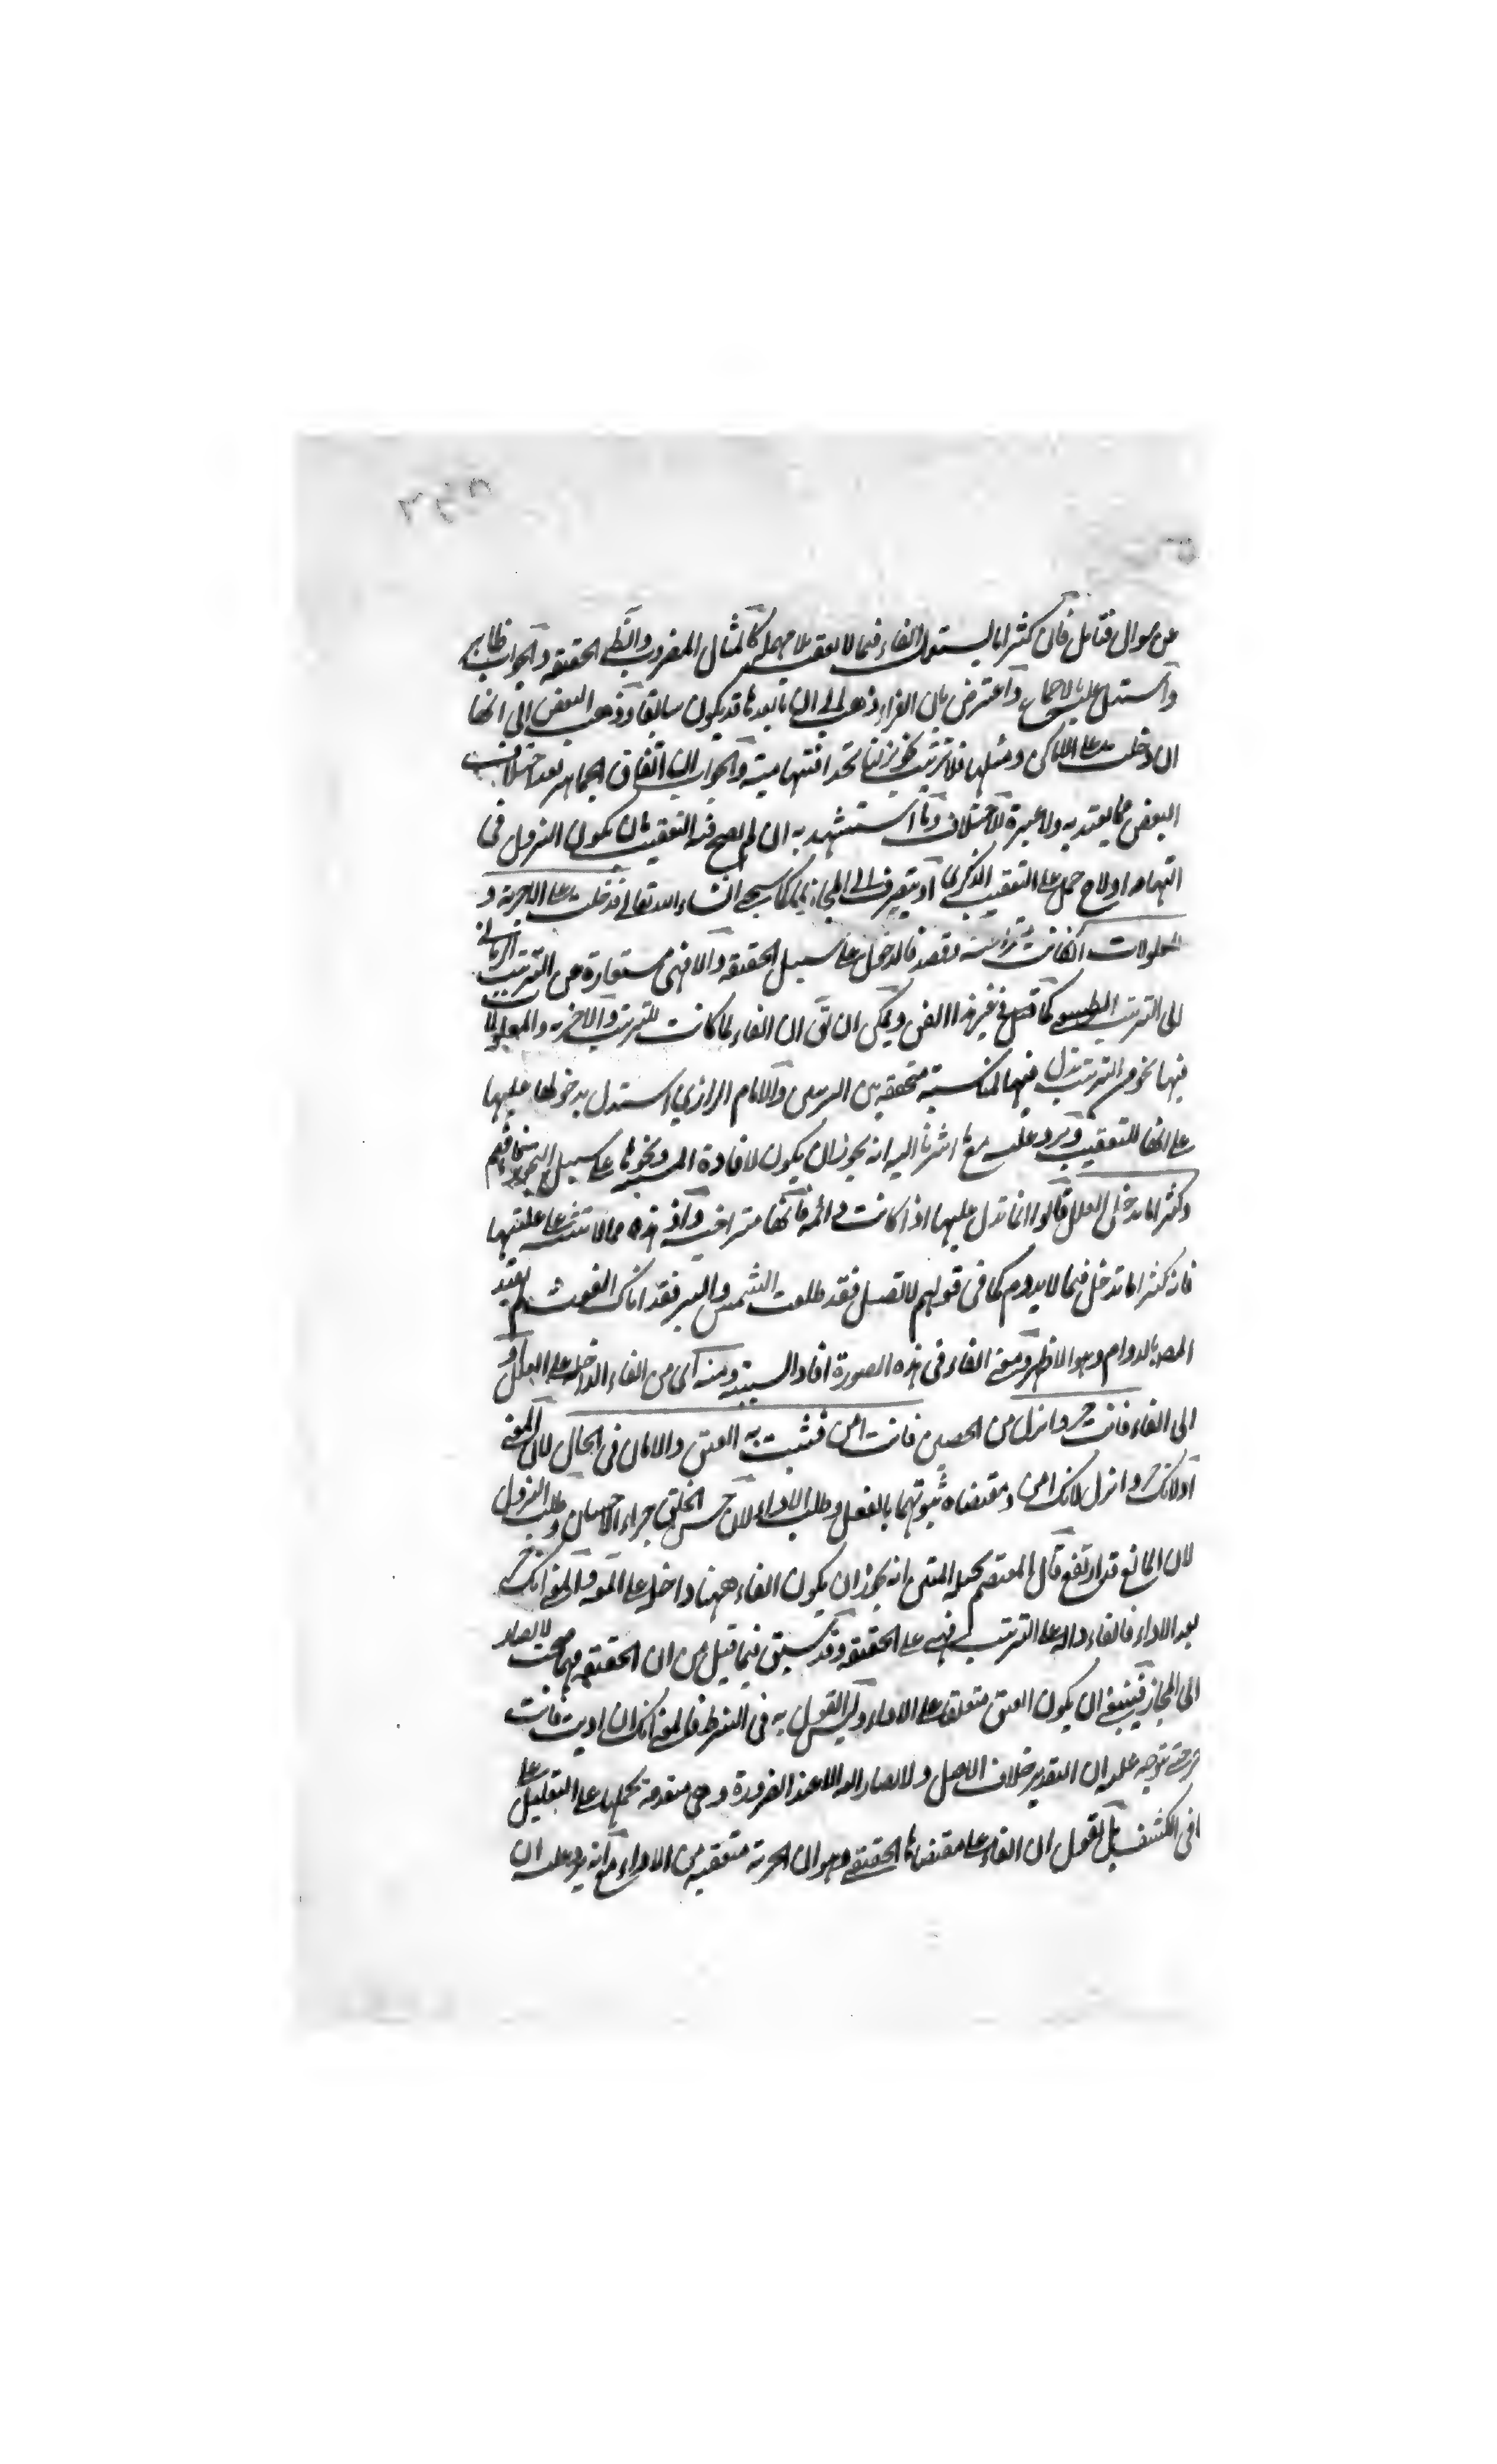 عن سوال فتامل فان كثيرا ما يستعمل الفاء فيما لا يعقب بلا مهملة كالمثال المضروب والظ الحقيقة والجواب ظاهر
واستدل عليه بالاجماع واعترض بان الفراء ذهب الى ان ما بعدها قد يكون سابقا وذهب البعض الى انها
ان دخلت على الاماكن ومثلها فلا ترتيب نحو نزلنا نجدا فتهامة والجواب ان اتفاق الجماهير بعد اختلاف
البعض مما يعتد به ولا عبرة للاختلاف وما استشهد به ان لم يصح فيه التعقيب بان يكون النزول في
التهامة اولا حمل على التعقيب الذكرى او يتصرف الى المجاز كما سيجئ انشاء الله تعالى فدخلت على الاجزية و
المعلولات انكانت وقصد فالدخول على سبيل الحقيقة والا فهى مستعارة عن الترتيب الزمانى
الى الترتيب كما قيل في غير هذا الفن ويمكن ان يق ان الفاء لما كانت للترتيب والاجزية والمعلولات
فيها نحو من الترتيب تدل فيها لمناسبة متحققة بين والامام الرازي استدل بدخولها عليها
على انها للتعقيب ويرد عليه مع ما اشرنا اليه انه يجوز ان يكون لافادة السببية ونحوها على سبيل التجوز فافهم
وكثيرا ما تدخل العلل قالوا انما تدخل عليها اذا كانت دائمة فانها متراخية واذ هذه مما لا على علتيها
فانه كثيرا ما تدخل فيما لا يدوم كما في قولهم لا تصل فقد طلعت الشمس وابشر فقد اتاك الغوث لم يقيد
المص بالدوام وهو الاظهر ومعنى الفاء في هذه الصورة افادة السببية ومنه اى من الفاء الداخلة على العلل اد
الى الفا فانت حر وانزل من الحصن فانت امن فيثبت به العتق والامان في الحال لان المعنى
اد لانك حر وانزل لانك امن ومقتضاه ثبوتهما بالفعل وطلب الاداء لان حسن الخلق جزاء الاحسان وطلب النزول
لان المانع قد ارتفع قال المعتصم بحبله المتين انه يجوز ان يكون الفاء ههنا داخلة على المعلول والمعنى انك حر
بعد الاداء فالفاء دالة على الترتيب فهى على الحقيقة وقد سبق فيما قيل من ان الحقيقة مهما صحت لا يصار
الى المجاز فينبغى ان يكون العتق متعلقا على الاداء وليس القول به في الشرط فالمعنى انك ان اديت فانت
حر حتى يتوجه عليه ان التقدير خلاف الاصل ولا يصار اليه الا عند الضرورة وهى منعدمة بحملها على التعليل على
ما في الكشف بل نقول ان الفاء على مقتضاها الحقيقى وهو ان الحرية متعقبة من الاداء مع انه يرد عليه ان